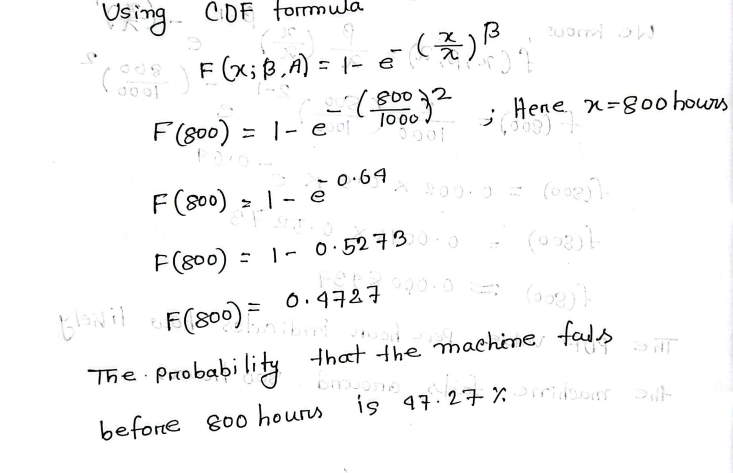 Using CDF formula
F(x; β, λ) = 1 - e^-(x/λ)^β
F(800) = 1 - e^-(800/1000)^2 ; Here x = 800 hours
F(800) = 1 - e^-0.64
F(800) = 1 - 0.5273
F(800) = 0.4727
The probability that the machine fails
before 800 hours is 47.27 %